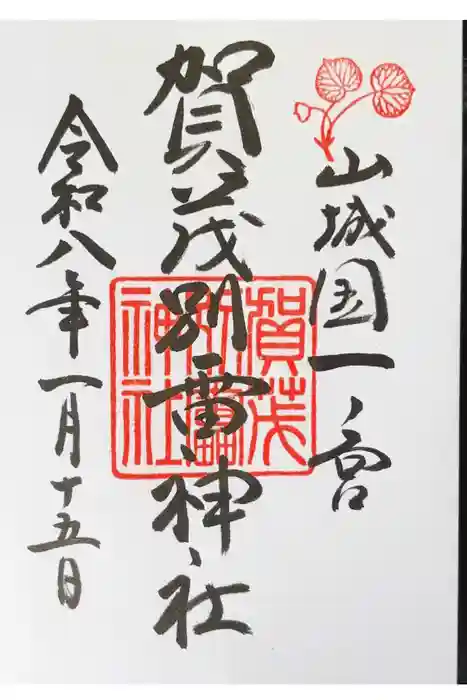 山城国一ノ宮
賀茂別雷神社
賀茂
別雷
神社
令和八年一月十五日